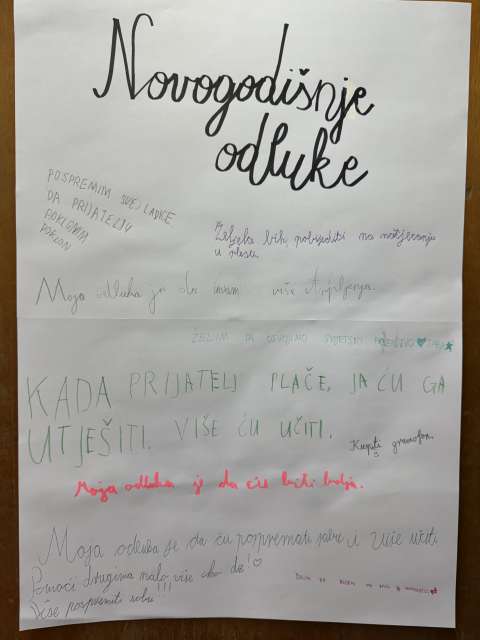 Novogodišnje
odluke
POSPREMIM SVOJ LADICE
DA PRIJATELJU
POKLONIM
POKLON
Željela bih pobijediti na natjecanju
u plesu.
Moja odluka je da imam više strpljenja.
ŽELIM DA OSVOJIMO SVJETSKO
KADA PRIJATELJ PLAČE, JA ĆU GA
UTJEŠITI. VIŠE ĆU UČITI.
Kupiti gramofon.
Moja odluka je da ću biti bolja.
Moja odluka je da ću pospremati sobu i više učiti
Pomoći drugima malo više
Više pospremiti sobu!!!